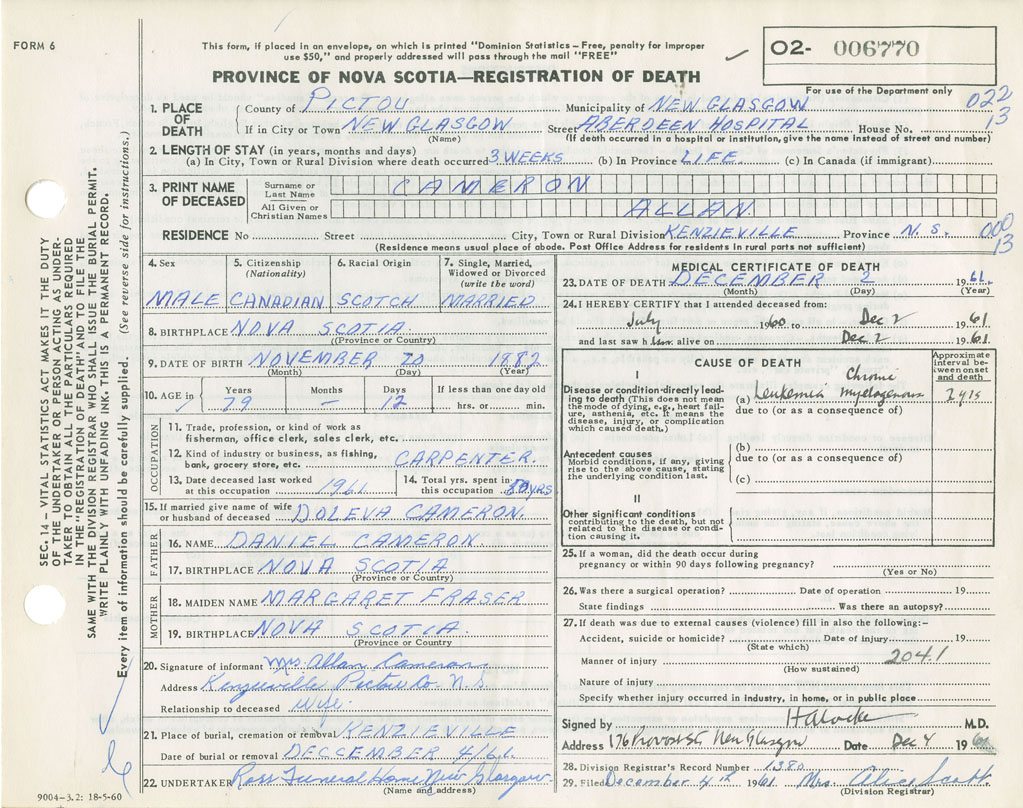 FORM 6
This form, if placed in an envelope, on which is printed "Dominion Statistics – Free, penalty for improper
use $50," and properly addressed will pass through the mail "FREE"
02- 006770
For use of the Department only
PROVINCE OF NOVA SCOTIA—REGISTRATION OF DEATH
022
13
1. PLACE OF DEATH
County of PICTOU Municipality of NEW GLASGOW
If in City or Town NEW GLASGOW Street ABERDEEN HOSPITAL House No.
(Name) (If death occurred in a hospital or institution, give the name instead of street and number)
2. LENGTH OF STAY (in years, months and days)
(a) In City, Town or Rural Division where death occurred 3 WEEKS (b) In Province LIFE (c) In Canada (if immigrant)
3. PRINT NAME OF DECEASED
Surname or Last Name CAMERON
All Given or Christian Names ALLAN
RESIDENCE No Street City, Town or Rural Division KENZIEVILLE Province N. S.
000
13
(Residence means usual place of abode. Post Office Address for residents in rural parts not sufficient)
4. Sex MALE
5. Citizenship (Nationality) CANADIAN
6. Racial Origin SCOTCH
7. Single, Married, Widowed or Divorced (write the word) MARRIED
8. BIRTHPLACE NOVA SCOTIA
(Province or Country)
9. DATE OF BIRTH NOVEMBER 20 1882
(Month) (Day) (Year)
10. AGE in Years 79 Months – Days 12 If less than one day old hrs. or min.
OCCUPATION
11. Trade, profession, or kind of work as
fisherman, office clerk, sales clerk, etc.
12. Kind of industry or business, as fishing,
bank, grocery store, etc. CARPENTER
13. Date deceased last worked
at this occupation 1961
14. Total yrs. spent in
this occupation YRS
15. If married give name of wife
or husband of deceased DOLEVA CAMERON.
FATHER
16. NAME DANIEL CAMERON
17. BIRTHPLACE NOVA SCOTIA
(Province or Country)
MOTHER
18. MAIDEN NAME MARGARET FRASER
19. BIRTHPLACE NOVA SCOTIA.
(Province or Country
20. Signature of informant Mrs. Allan Cameron
Address Kenzieville Pictou Co. N.S.
Relationship to deceased Wife.
21. Place of burial, cremation or removal KENZIEVILLE
Date of burial or removal DECCEMBER 4/61.
22. UNDERTAKER Ross Funeral Home New Glasgow
(Name and address)
MEDICAL CERTIFICATE OF DEATH
23. DATE OF DEATH DECEMBER 2 1961.
(Month) (Day) (Year)
24. I HEREBY CERTIFY that I attended deceased from:
July 1960 to Dec 2 1961
and last saw him alive on Dec. 2 1961.
CAUSE OF DEATH
Approximate interval between onset and death
I
Disease or condition directly leading
to death (This does not mean
the mode of dying, e.g., heart failure,
asthenia, etc. It means the
disease, injury, or complication
which caused death.)
Chronic
(a) Leukemia myelogenous 2 yrs
due to (or as a consequence of)
Antecedent causes
Morbid conditions, if any, giving
rise to the above cause, stating
the underlying condition last.
(b)
due to (or as a consequence of)
(c)
II
Other significant conditions
contributing to the death, but not
related to the disease or condition
causing it.
25. If a woman, did the death occur during
pregnancy or within 90 days following pregnancy?
(Yes or No)
26. Was there a surgical operation? Date of operation 19
State findings Was there an autopsy?
27. If death was due to external causes (violence) fill in also the following:–
Accident, suicide or homicide? Date of injury 19
(State which)
Manner of injury 204.1
(How sustained)
Nature of injury
Specify whether injury occurred in industry, in home, or in public place
Signed by M.D.
Address 176 Provost St New Glasgow Date Dec 4 1961
28. Division Registrar's Record Number 1380
29. Filed December 4th 1961 Mrs. Alice Scott.
(Division Registrar)
SEC. 14 – VITAL STATISTICS ACT MAKES IT THE DUTY
OF THE UNDERTAKER OR PERSON ACTING AS UNDERTAKER
TO OBTAIN ALL THE PARTICULARS REQUIRED
IN THE "REGISTRATION OF DEATH" AND TO FILE THE
SAME WITH THE DIVISION REGISTRAR WHO SHALL ISSUE THE BURIAL PERMIT.
WRITE PLAINLY WITH UNFADING INK. THIS IS A PERMANENT RECORD.
Every item of information should be carefully supplied. (See reverse side for instructions.)
9004-3.2: 18-5-60